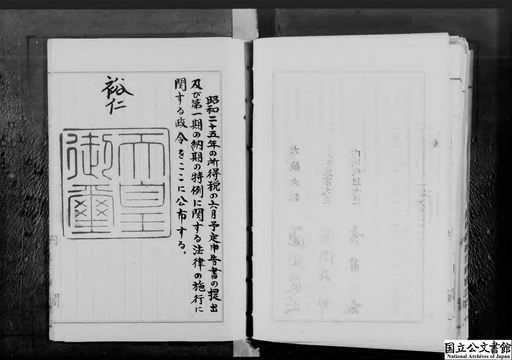 昭和二十五年の所得税の六月予定申告書の提出
及び第一期の納期の特例に関する法律の施行に
関する政令をここに公布する。
裕仁
天皇
御璽
国立公文書館
National Archives of Japan